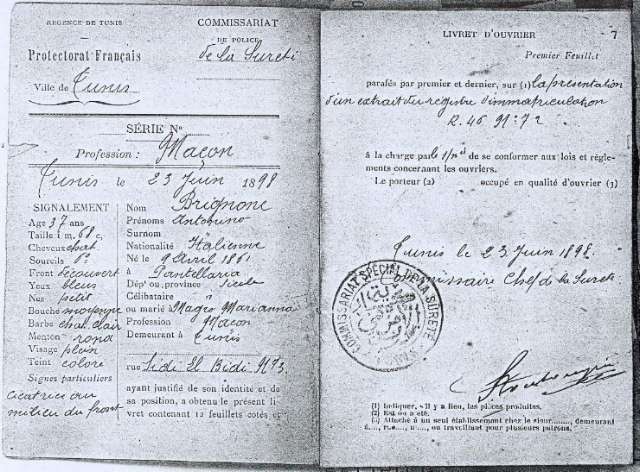 REGENCE DE TUNIS
Protectorat Français
Ville de Tunis
COMMISSARIAT
DE POLICE
de la Sureté
SÉRIE No
Profession : Maçon
Tunis le 23 Juin 1898
SIGNALEMENT
Age 37 ans
Taille 1 m. 68 c.
Cheveux
Sourcils
Front découvert
Yeux bleus
Nez petit
Bouche moyenne
Barbe chat. clair
Menton rond
Visage plein
Teint coloré
Signes particuliers
cicatrice au
milieu du front
Nom Brignone
Prénoms Antonino
Surnom
Nationalité Italienne
Né le 9 Avril 1861
à Pantellaria
Dépt ou province Sicile
Célibataire "
ou marié à Mages Marianna
Profession Maçon
Demeurant à Tunis
rue Sidi El
ayant justifié de son identité et de
sa position, a obtenu le présent li
vret contenant 12 feuillets cotés et
LIVRET D'OUVRIER 7
Premier Feuillet
parafés par premier et dernier, sur (1) la présentation
d'un extrait du registre d'immatriculation
R. 46 No 72
à la charge par le de se conformer aux lois et règle-
ments concernant les ouvriers.
Le porteur (2) occupé en qualité d'ouvrier (3)
Tunis le 23 Juin 1898
Commissaire Chef de la Sureté
COMMISSARIAT SPÉCIAL DE LA SURETÉ
TUNIS
(1) Indiquer, s'il y a lieu, les pièces produites.
(2) Est ou a été.
(3) Attaché à un seul établissement chez le sieur........, demeurant
à...., r.e...., n°..., ou travaillant pour plusieurs patrons.